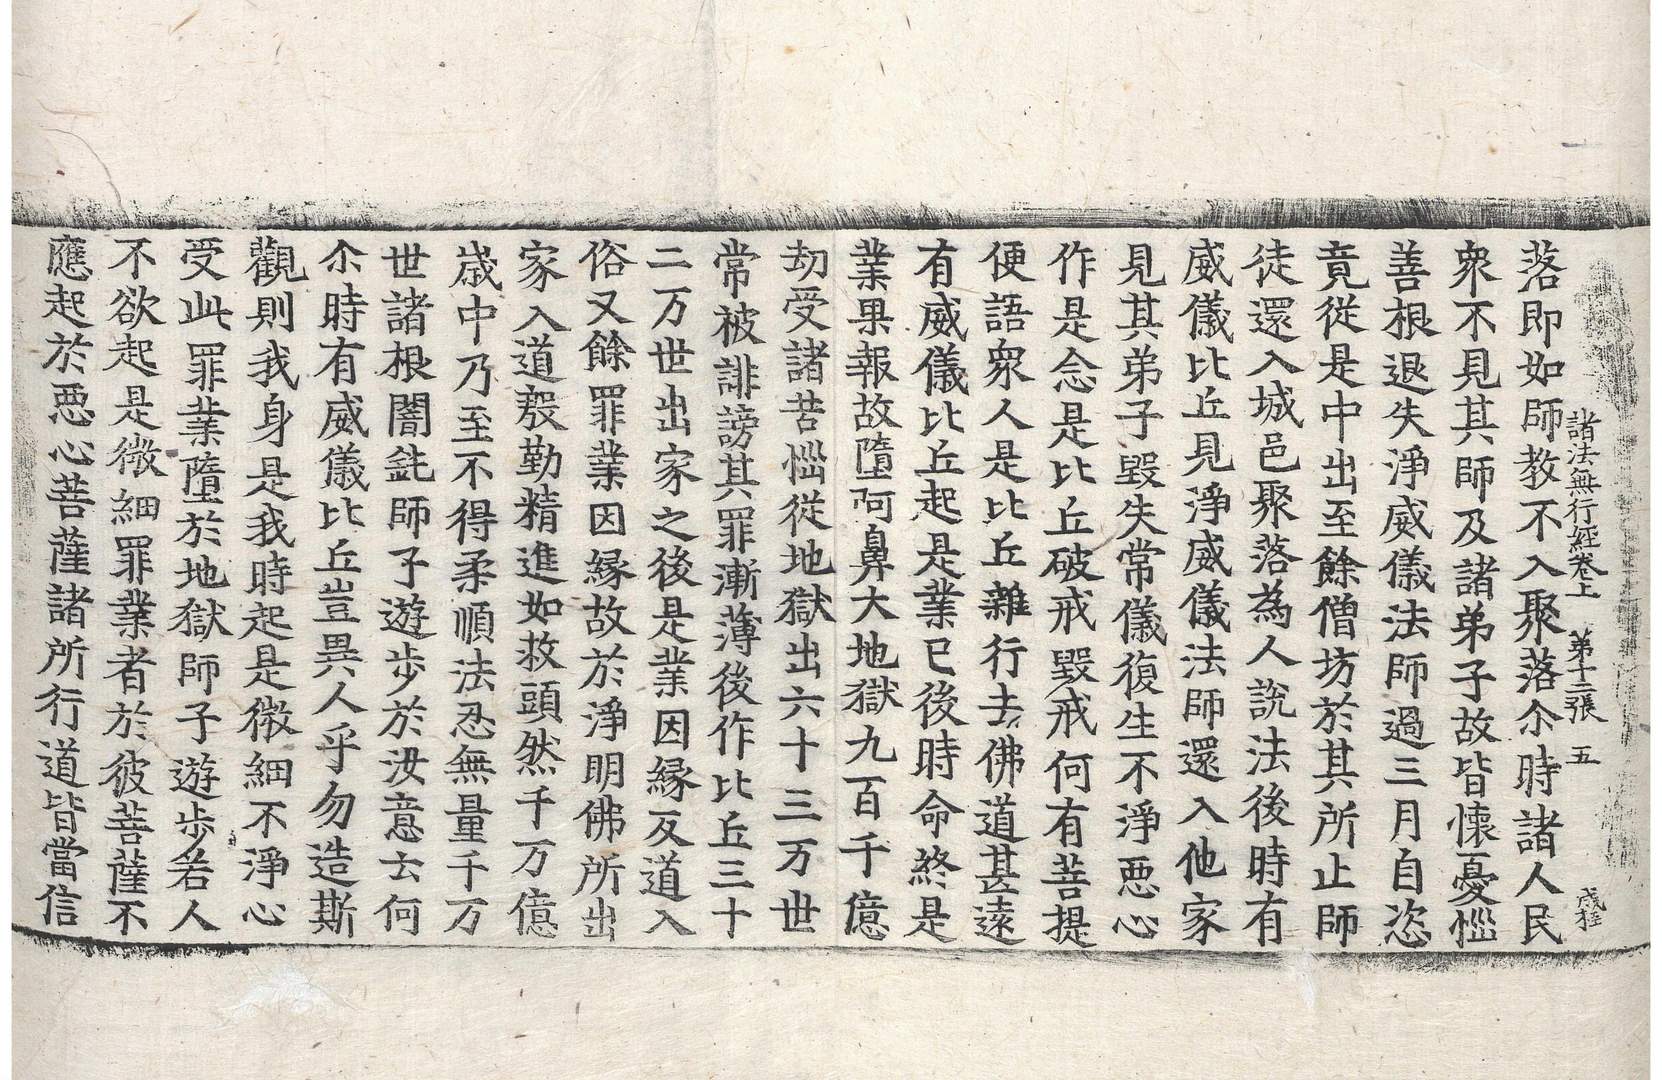 諸法無行經卷上　第十二張　五
落即如師教不入聚落尒時諸人民
衆不見其師及諸弟子故皆懷憂惱
善根退失淨威儀法師過三月自恣
竟從是中出至餘僧坊於其所止師
徒還入城邑聚落為人說法後時有
威儀比丘見淨威儀法師還入他家
見其弟子毀失常儀復生不淨惡心
作是念是比丘破戒毀戒何有菩提
便語衆人是比丘雜行去佛道甚遠
有威儀比丘起是業已後時命終是
業果報故墮阿鼻大地獄九百千億
劫受諸苦惱從地獄出六十三万世
常被誹謗其罪漸薄後作比丘三十
二万世出家之後是業因縁反道入
俗又餘罪業因縁故於淨明佛所出
家入道慇勤精進如救頭然千万億
歲中乃至不得柔順法忍無量千万
世諸根闇鈍師子遊步於汝意云何
尒時有威儀比丘豈異人乎勿造斯
觀則我身是我時起是微細不淨心
受此罪業墮於地獄師子遊步若人
不欲起是微細罪業者於彼菩薩不
應起於惡心菩薩諸所行道皆當信